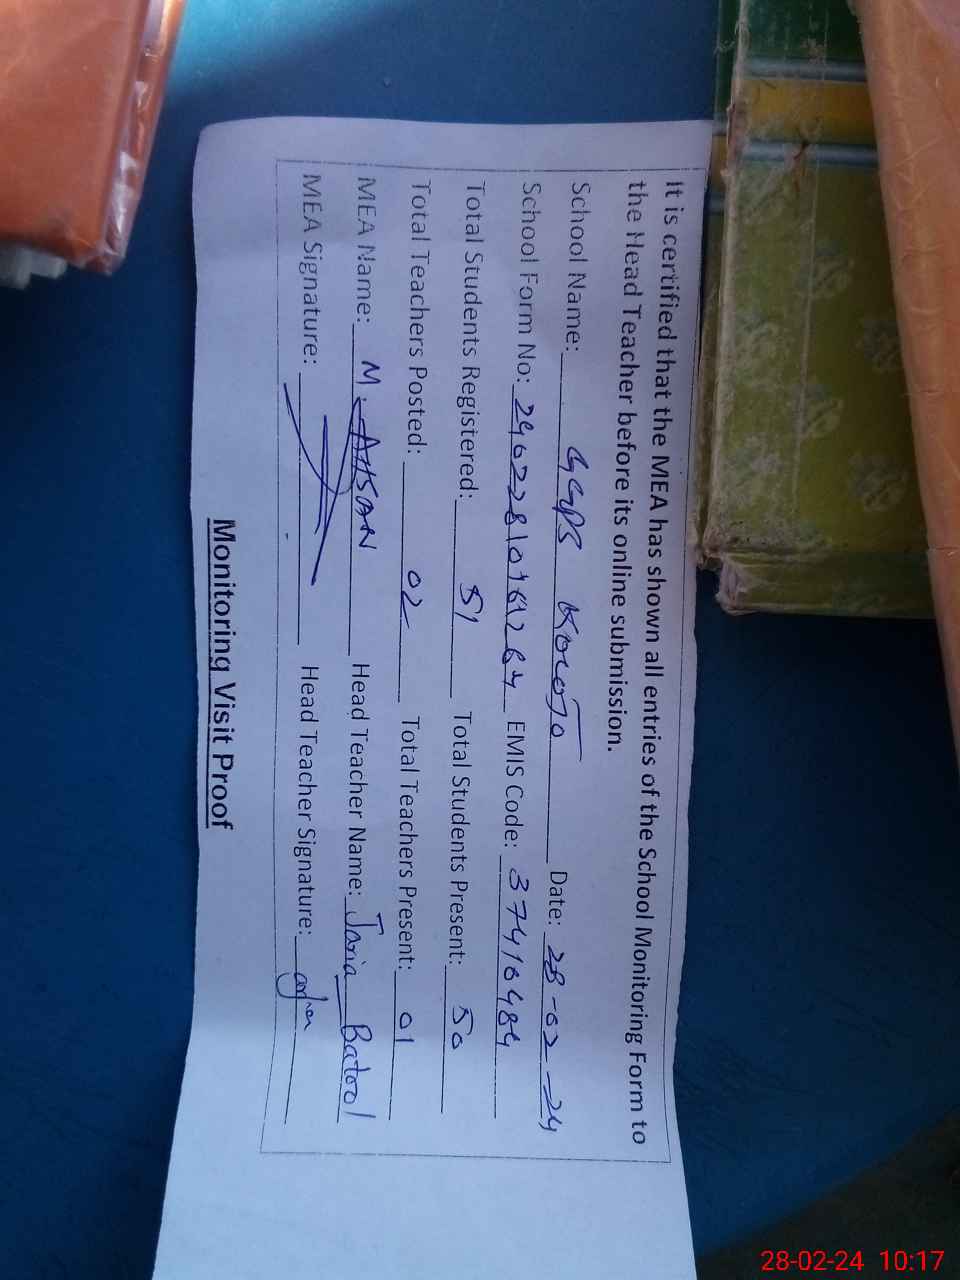 It is certified that the MEA has shown all entries of the School Monitoring Form to
the Head Teacher before its online submission.
School Name: GGPS Date: 28-02-24
School Form No: EMIS Code: 37410484
Total Students Registered: 51 Total Students Present: 50
Total Teachers Posted: 02 Total Teachers Present: 01
MEA Name: M. AHSAN Head Teacher Name: Jaria Batool
MEA Signature: Head Teacher Signature:
Monitoring Visit Proof
28-02-24 10:17